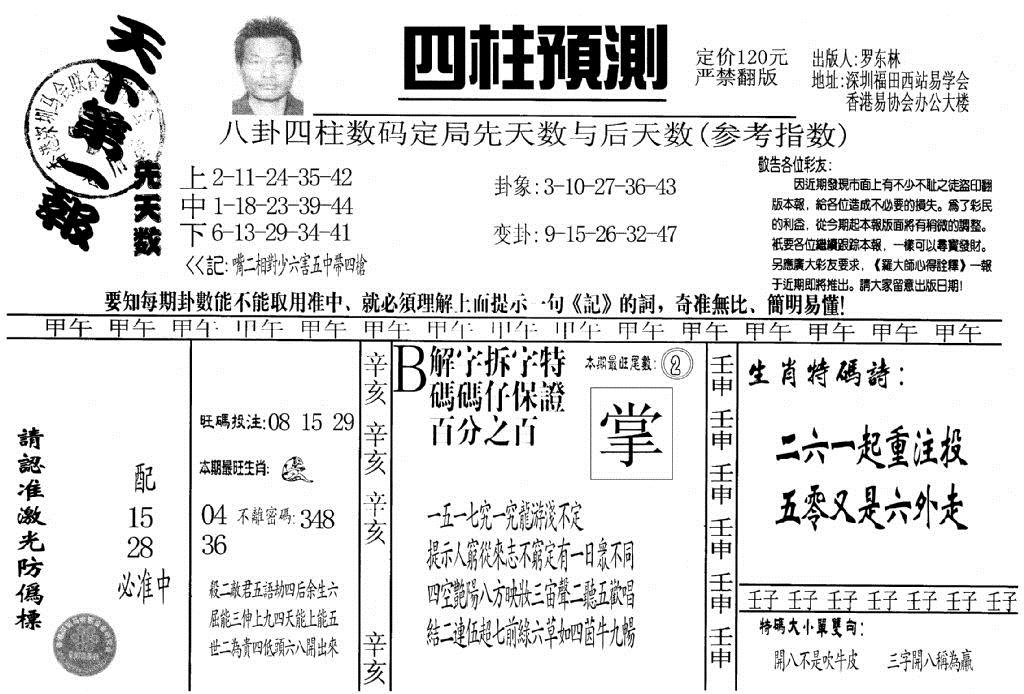 天下第一報
先天數
四柱預測
定价120元
严禁翻版
出版人:罗东林
地址:深圳福田西站易学会
香港易协会办公大楼
八卦四柱数码定局先天数与后天数(参考指数)
上 2-11-24-35-42
中 1-18-23-39-44
下 6-13-29-34-41
<<記:嘴二相對少六害五中帶四槍
卦象:3-10-27-36-43
变卦:9-15-26-32-47
敬告各位彩友:
因近期發現市面上有不少不耻之徒盜印翻
版本報,給各位造成不必要的損失。爲了彩民
的利益,從今期起本報版面將有稍微的調整。
祇要各位繼續跟踪本報,一樣可以尋寶發財。
另應廣大彩友要求,《羅大師心得詮釋》一報
于近期即將推出。請大家留意出版日期!
要知每期卦數能不能取用准中、就必須理解上面提示一句《記》的詞,奇准無比、簡明易懂!
甲午 甲午 甲午 甲午 甲午 甲午 甲午 甲午 甲午 甲午 甲午 甲午 甲午 甲午 甲午
請認准激光防僞標
配
15
28
必准中
旺碼投注:08 15 29
本期最旺生肖:
04 不離密碼:348
36
殺二敵君五語劫四后余生六
屈能三伸上九四天能上能五
世二為貴四低頭六八開出來
辛亥 辛亥 辛亥 辛亥
B解字拆字特
碼碼仔保證
百分之百
本期最旺尾數:②
掌
一五一七究一究龍游淺不定
提示人窮從來志不窮定有一日衆不同
四空艷陽八方映妝三宙聲二聽五歡唱
結二連伍超七前綠六草如四茵牛九暢
壬申 壬申 壬申 壬申 壬申 壬申
生肖特碼詩:
二六一起重注投
五零又是六外走
壬子 壬子 壬子 壬子 壬子 壬子 壬子
特碼大小單雙句:
開八不是吹牛皮 三字開八稱為贏